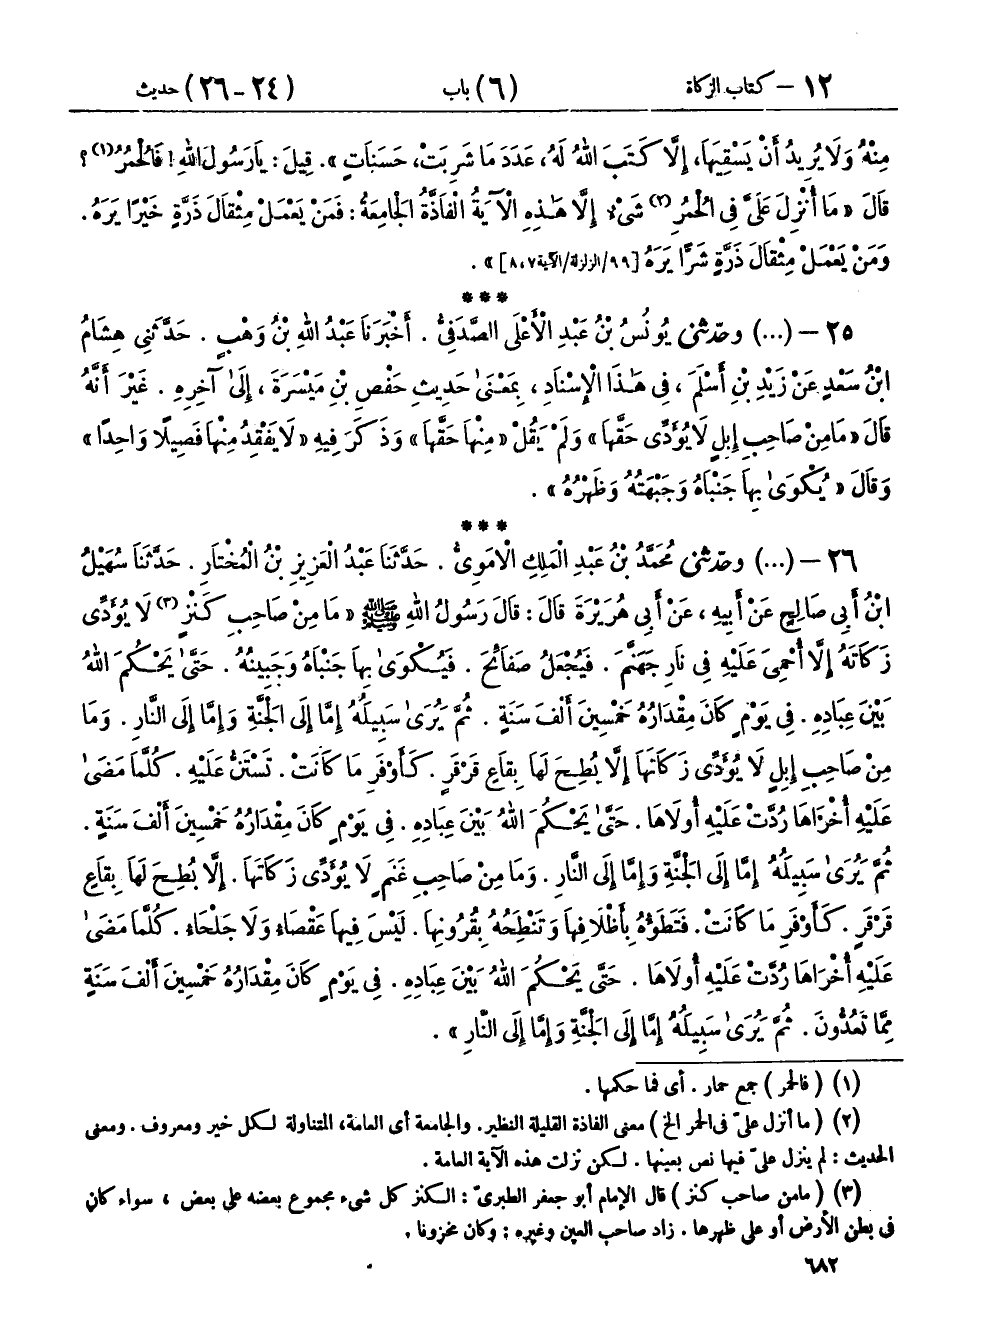 ١٢ – كتاب الزكاة (٦) باب (٢٤-٢٦) حديث
مِنْهُ وَلَا يُرِيدُ أَنْ يَسْقِيَهَا، إِلَّا كَتَبَ اللهُ لَهُ، عَدَدَ مَا شَرِبَتْ، حَسَنَاتٍ». قِيلَ: يَا رَسُولَ اللهِ! فَالْحُمُرُ(١)؟
قَالَ «مَا أُنْزِلَ عَلَىَّ فِى الْحُمُرِ(٢) شَىْءٌ إِلَّا هَـٰذِهِ الْآيَةُ الْفَاذَّةُ الْجَامِعَةُ: فَمَنْ يَعْمَلْ مِثْقَالَ ذَرَّةٍ خَيْرًا يَرَهُ.
وَمَنْ يَعْمَلْ مِثْقَالَ ذَرَّةٍ شَرًّا يَرَهُ [٩٩/الزلزلة/الآية ٨،٧]».
***
٢٥ – (...) وحدّثنى يُونُسُ بْنُ عَبْدِ الْأَعْلَى الصَّدَفِىُّ. أَخْبَرَنَا عَبْدُ اللهِ بْنُ وَهْبٍ. حَدَّثَنِى هِشَامُ
ابْنُ سَعْدٍ عَنْ زَيْدِ بْنِ أَسْلَمَ، فِى هَـٰذَا الْإِسْنَادِ، بِمَعْنَىٰ حَدِيثِ حَفْصِ بْنِ مَيْسَرَةَ، إِلَىٰ آخِرِهِ. غَيْرَ أَنَّهُ
قَالَ «مَا مِنْ صَاحِبِ إِبِلٍ لَا يُؤَدِّى حَقَّهَا» وَلَمْ يَقُلْ «مِنْهَا حَقَّهَا» وَذَكَرَ فِيهِ «لَا يَفْقِدُ مِنْهَا فَصِيلًا وَاحِدًا»
وَقَالَ «يُكْوَىٰ بِهَا جَنْبَاهُ وَجَبْهَتُهُ وَظَهْرُهُ».
***
٢٦ – (...) وحدّثنى مُحَمَّدُ بْنُ عَبْدِ الْمَلِكِ الْأُمَوِىُّ. حَدَّثَنَا عَبْدُ الْعَزِيزِ بْنُ الْمُخْتَارِ. حَدَّثَنَا سُهَيْلُ
ابْنُ أَبِى صَالِحٍ عَنْ أَبِيهِ، عَنْ أَبِى هُرَيْرَةَ قَالَ: قَالَ رَسُولُ اللهِ ﷺ «مَا مِنْ صَاحِبِ كَنْزٍ(٣) لَا يُؤَدِّى
زَكَاتَهُ إِلَّا أُحْمِىَ عَلَيْهِ فِى نَارِ جَهَنَّمَ. فَيُجْعَلُ صَفَائِحَ. فَيُكْوَىٰ بِهَا جَنْبَاهُ وَجَبِينُهُ. حَتَّىٰ يَحْكُمَ اللهُ
بَيْنَ عِبَادِهِ. فِى يَوْمٍ كَانَ مِقْدَارُهُ خَمْسِينَ أَلْفَ سَنَةٍ. ثُمَّ يُرَىٰ سَبِيلُهُ إِمَّا إِلَى الْجَنَّةِ وَإِمَّا إِلَى النَّارِ. وَمَا
مِنْ صَاحِبِ إِبِلٍ لَا يُؤَدِّى زَكَاتَهَا إِلَّا بُطِحَ لَهَا بِقَاعٍ قَرْقَرٍ. كَأَوْفَرِ مَا كَانَتْ. تَسْتَنُّ عَلَيْهِ. كُلَّمَا مَضَىٰ
عَلَيْهِ أُخْرَاهَا رُدَّتْ عَلَيْهِ أُولَاهَا. حَتَّىٰ يَحْكُمَ اللهُ بَيْنَ عِبَادِهِ. فِى يَوْمٍ كَانَ مِقْدَارُهُ خَمْسِينَ أَلْفَ سَنَةٍ.
ثُمَّ يُرَىٰ سَبِيلُهُ إِمَّا إِلَى الْجَنَّةِ وَإِمَّا إِلَى النَّارِ. وَمَا مِنْ صَاحِبِ غَنَمٍ لَا يُؤَدِّى زَكَاتَهَا. إِلَّا بُطِحَ لَهَا بِقَاعٍ
قَرْقَرٍ. كَأَوْفَرِ مَا كَانَتْ. فَتَطَؤُهُ بِأَظْلَافِهَا وَتَنْطَحُهُ بِقُرُونِهَا. لَيْسَ فِيهَا عَقْصَاءُ وَلَا جَلْحَاءُ. كُلَّمَا مَضَىٰ
عَلَيْهِ أُخْرَاهَا رُدَّتْ عَلَيْهِ أُولَاهَا. حَتَّىٰ يَحْكُمَ اللهُ بَيْنَ عِبَادِهِ. فِى يَوْمٍ كَانَ مِقْدَارُهُ خَمْسِينَ أَلْفَ سَنَةٍ
مِمَّا تَعُدُّونَ. ثُمَّ يُرَىٰ سَبِيلُهُ إِمَّا إِلَى الْجَنَّةِ وَإِمَّا إِلَى النَّارِ».
(١) (فالحمر) جمع حمار. أى فما حكمها.
(٢) (ما أنزل علىّ فى الحمر الخ) معنى الفاذة القليلة النظير. والجامعة أى العامة، المتناولة لكل خير ومعروف. ومعنى
الحديث: لم ينزل علىّ فيها نص بعينها. لكن نزلت هذه الآية العامة.
(٣) (مامن صاحب كنز) قال الإمام أبو جعفر الطبرىّ: الكنز كل شىء مجموع بعضه على بعض، سواء كان
فى بطن الأرض أو على ظهرها. زاد صاحب العين وغيره: وكان مخزونا.
٦٨٢